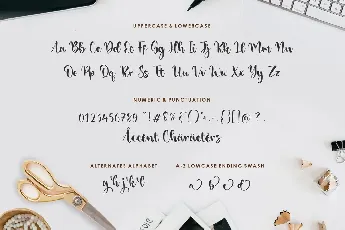 UPPERCASE & LOWERCASE
Aa Bb Cc Dd Ee Ff Gg Hh Ii Jj Kk Ll Mm Nn
Oo Pp Qq Rr Ss Tt Uu Vv Ww Xx Yy Zz
NUMERIC & PUNCTUATION
0123456789
Accent Characters
ALTERNATES ALPHABET
A-Z LOWCASE ENDING SWASH
g h j k l
a b c d